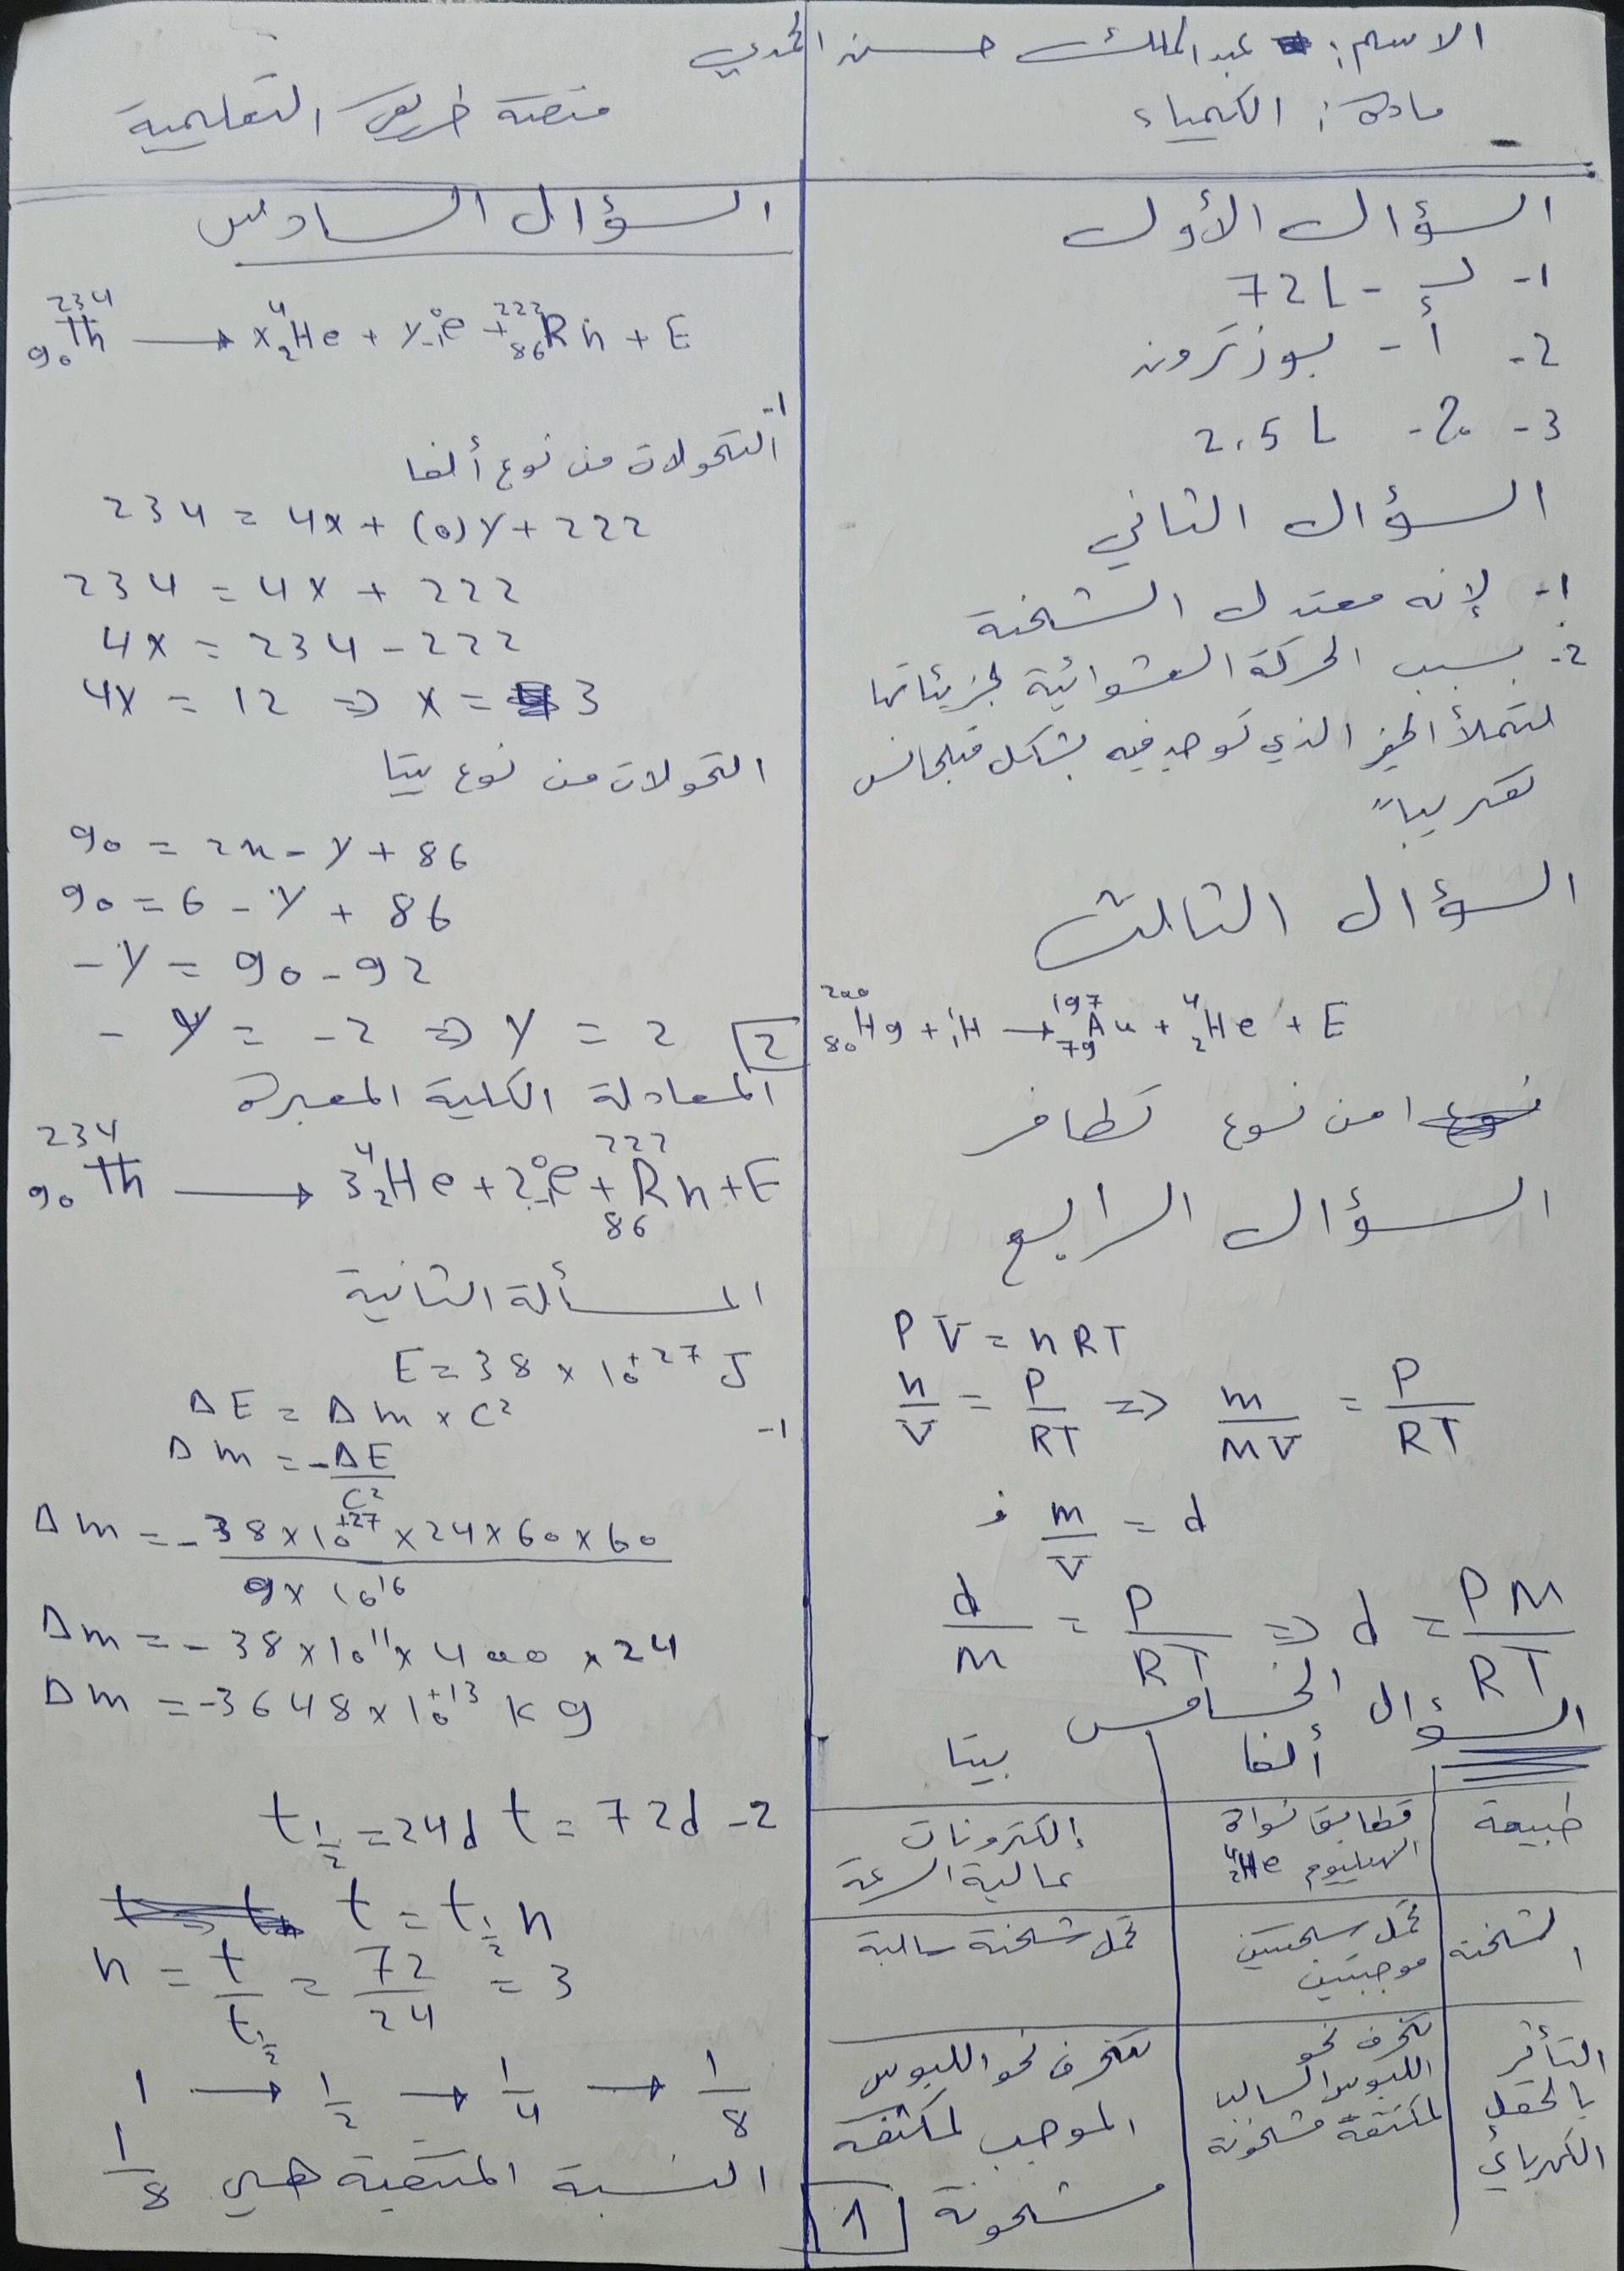 الاسم: عبد الملك حسن الحمدي
مادة: الكيمياء
منصة طريق التعليمية
السؤال الأول
1- ب - 72 L
2- أ - بوزترون
3- ج - 2.5 L
السؤال الثاني
1- لإنه معتدل الشحنة
2- بسبب الحركة العشوائية لجزيئاتها
لتملأ الحيز الذي توجد فيه بشكل متجانس
تقريباً
السؤال الثالث
²⁰⁰₈₀Hg + ¹₁H → ¹⁹⁷₇₉Au + ⁴₂He + E
من نوع تطافر
السؤال الرابع
P V = n R T
n/V = P/RT ⇒ m/MV = P/RT
و m/V = d
d/M = P/RT ⇒ d = PM/RT
السؤال الخامس
ألفا بيتا
طبيعة تطابق نواة الهيليوم ⁴₂He إلكترونات عالية السرعة
الشحنة تحمل شحنتين موجبتين تحمل شحنة سالبة
التأثر بالحقل الكهربائي تنحرف نحو اللبوس السالب لمكثفة مشحونة تنحرف نحو اللبوس الموجب لمكثفة مشحونة
1
السؤال السادس
²³⁴₉₀Th → x ⁴₂He + y ⁰₋₁e + ²²²₈₆Rn + E
1-
التحولات من نوع ألفا
234 = 4x + (0)y + 222
234 = 4x + 222
4x = 234 - 222
4x = 12 ⇒ x = 3
التحولات من نوع بيتا
90 = 2x - y + 86
90 = 6 - y + 86
- y = 90 - 92
- y = - 2 ⇒ y = 2
2
المعادلة الكلية المعبرة
²³⁴₉₀Th → 3 ⁴₂He + 2 ⁰₋₁e + ²²²₈₆Rn + E
المسألة الثانية
E = 38 × 10⁺²⁷ J
1- ΔE = Δm × C²
Δm = -ΔE/C²
Δm = - 38×10⁺²⁷×24×60×60 / 9×10¹⁶
Δm = - 38×10¹¹×400×24
Δm = -3648×10⁺¹³ kg
2- t = 72d t½ = 24d
t = t½ n
n = t/t½ = 72/24 = 3
1 → 1/2 → 1/4 → 1/8
النسبة المتبقية هي 1/8